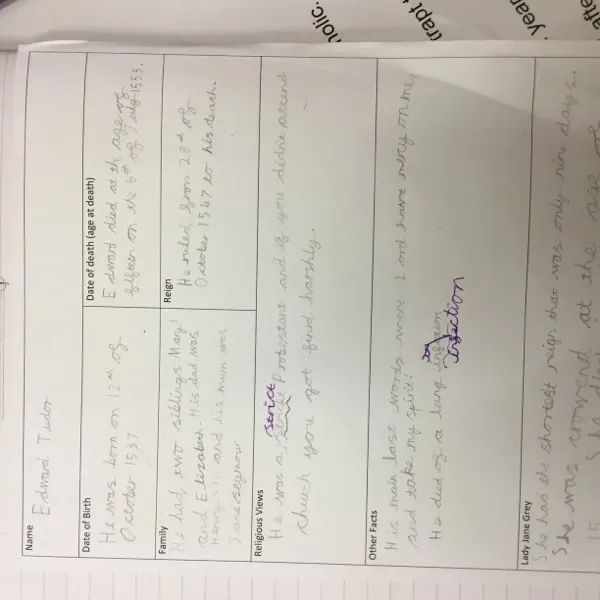 Name
Edward Tudor
Date of Birth
He was born on 12th of
October 1537.
Date of death (age at death)
Edward died at th age of
fifteen on the 6th of July 1553.
Family
He had two siblings Mary1
and Elizabeth. His dad was
Henry VIII and his mum was
Jane Seymour
Reign
He ruled from 28th of
October 1547 to his death.
Religious Views
strict
He was a Protestant and if you didn't attend
church you got fined harshly.
Other Facts
His main last words were Lord have mercy on me,
and take my spirit!
He died of a lung
infection
Lady Jane Grey
She had the shortest reign that was only nine days.
She was at the age of
15
She died
holic.
trapt
. year
afte